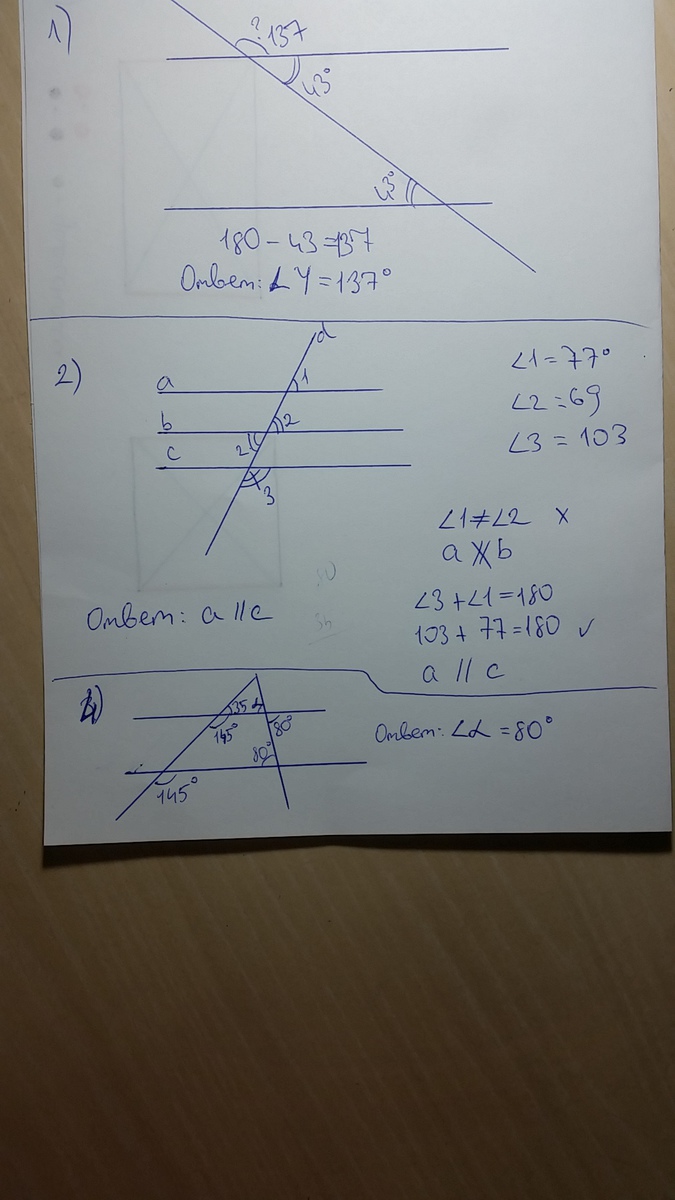 1)
? 137
43°
43°
180 - 43 = 137
Ответ: ∠Y = 137°
2)
d
a
1
b
2
2
c
3
∠1 = 77°
∠2 = 69
∠3 = 103
∠1 ≠ ∠2 x
a ∦ b
∠3 + ∠1 = 180
103 + 77 = 180 ✓
a // c
Ответ: a // c
35 α
145°
80°
80°
145°
Ответ: ∠α = 80°